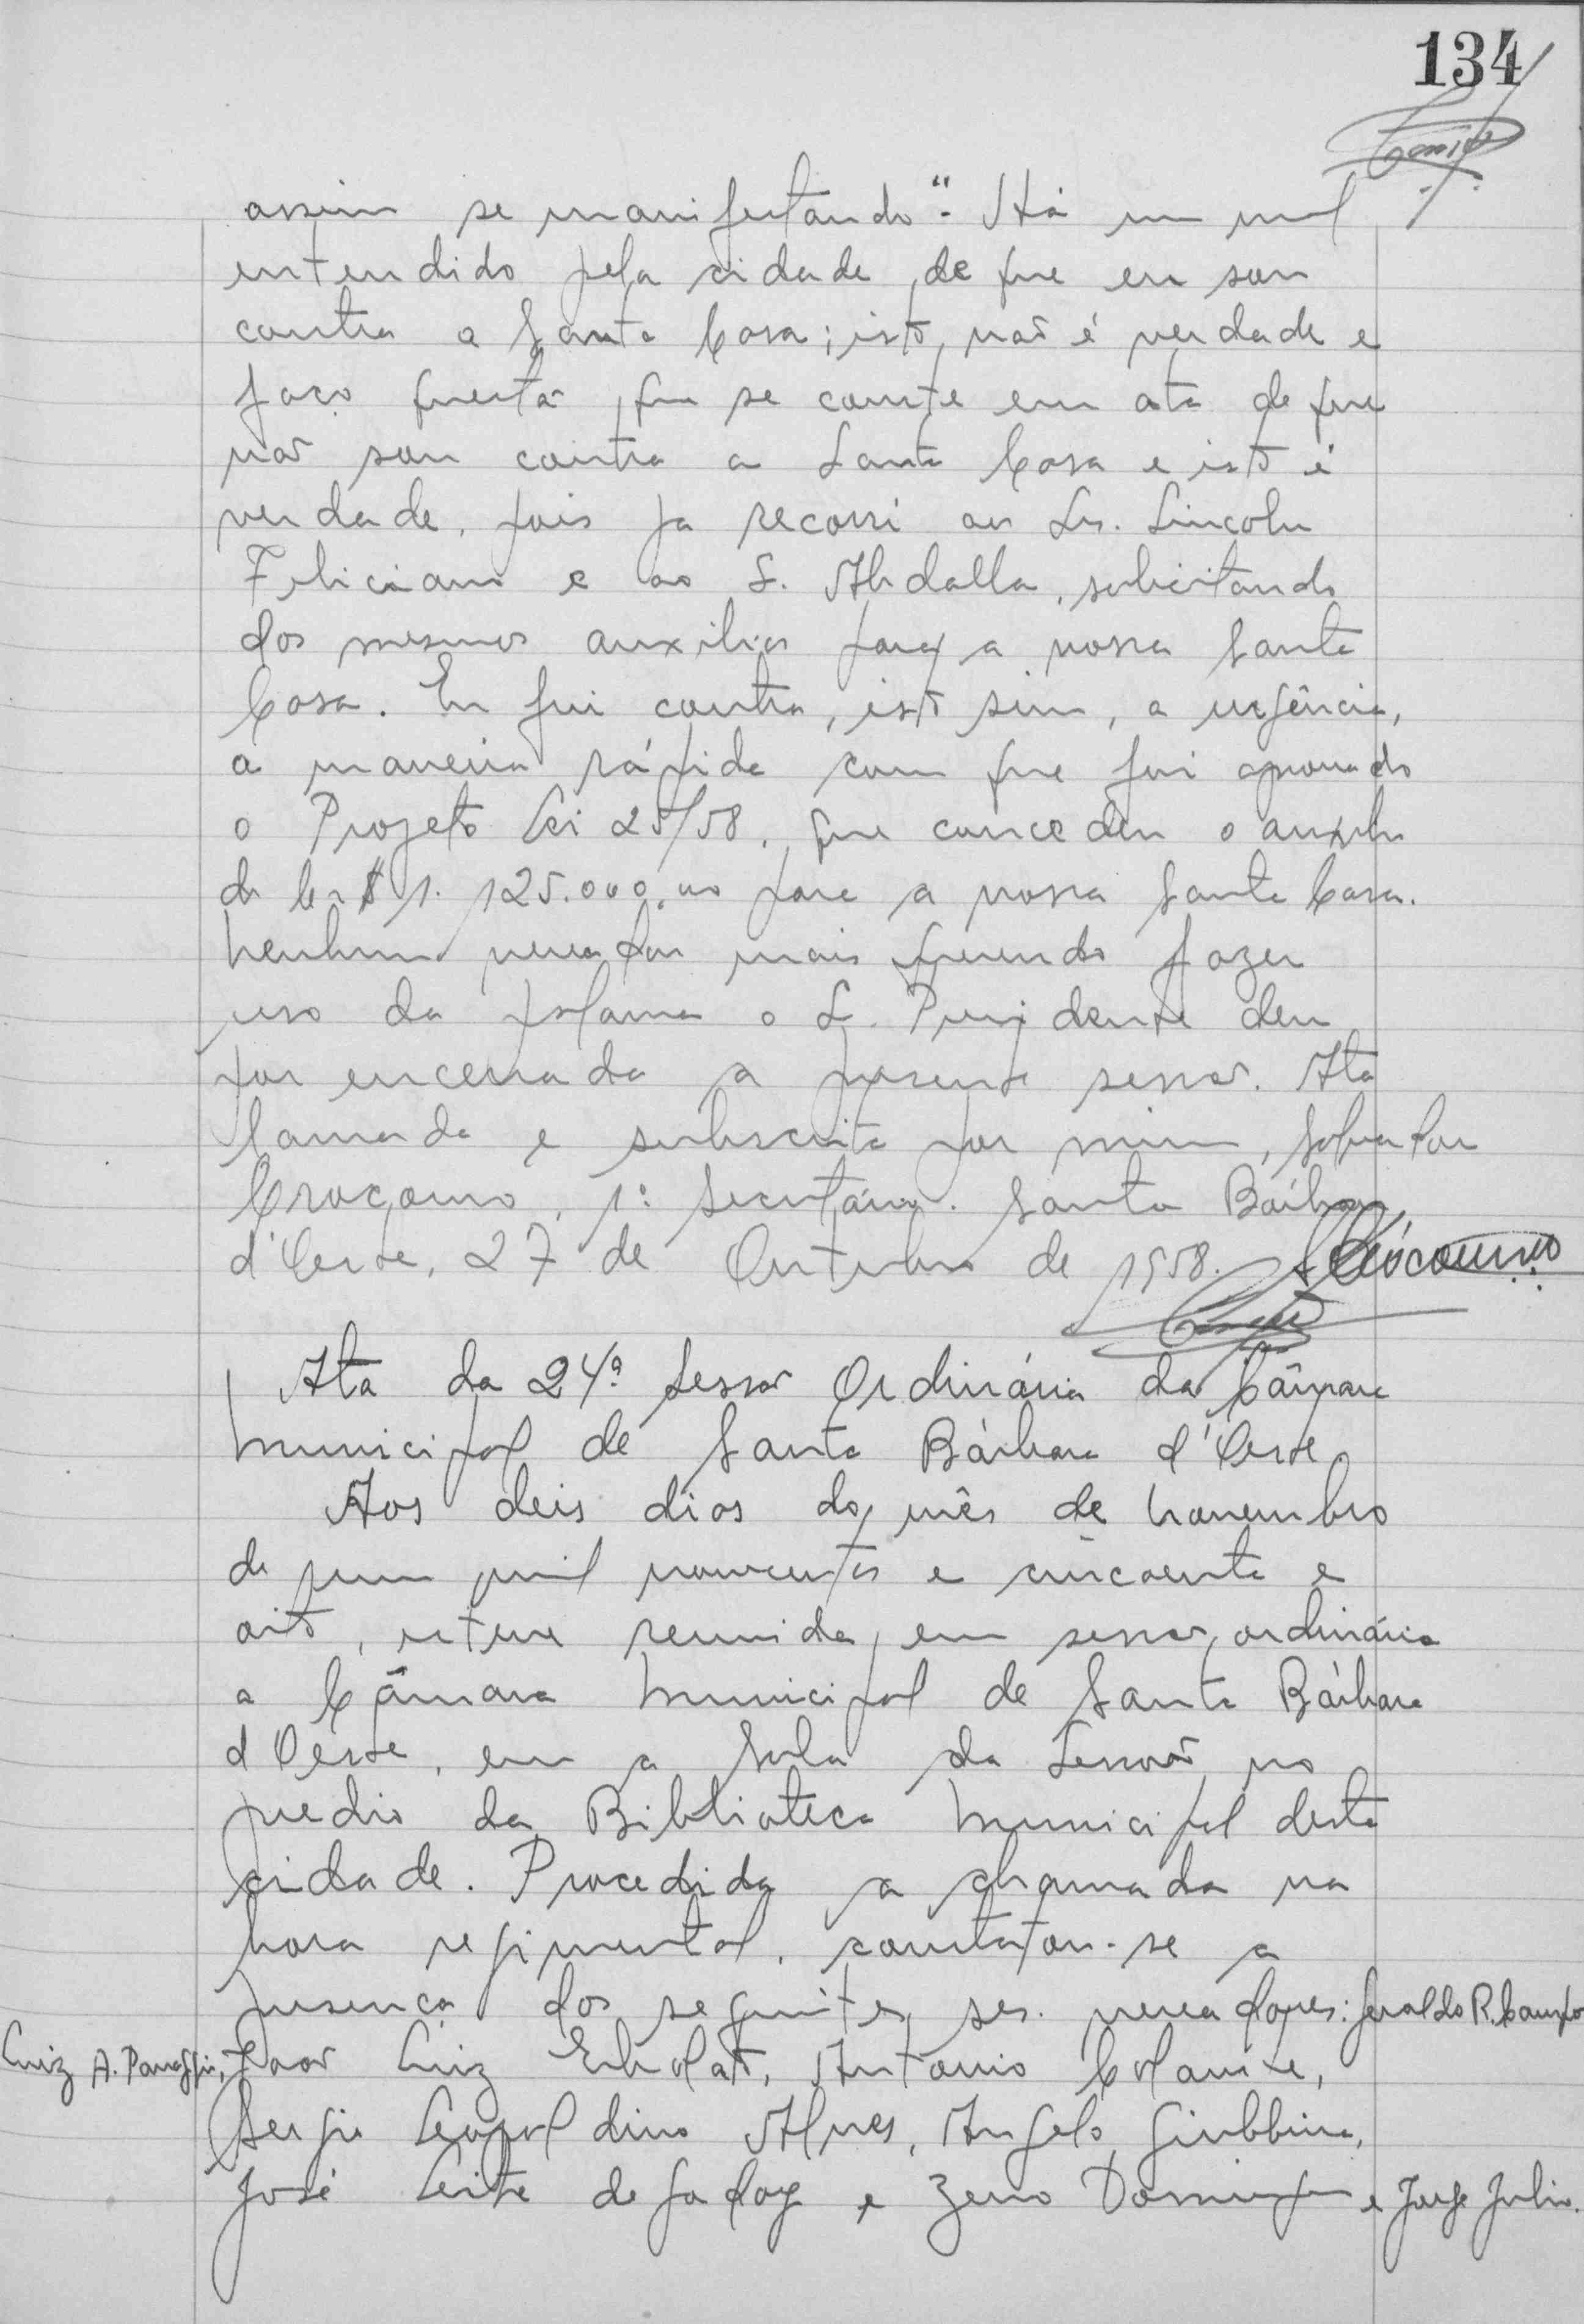 134
assim se manifestando "- Há um mal
entendido pela cidade, de que eu sou
contra a Santa Casa; isto não é verdade e
faço questão que se conste em ata de que
não sou contra a Santa Casa e isto é
verdade, pois já recorri ao Sr. Lincoln
Feliciano e ao S. Abdalla, solicitando
dos mesmos auxilios para a nossa Santa
Casa. Eu fui contra, isto sim, a urgência,
a maneira rápida com que foi aprovado
o Projeto Lei 25/58, que concedeu o auxilio
de Cr\$ 1.125.000,00 para a nossa Santa Casa.
Nenhum vereador mais querendo fazer
uso da palavra o S. Presidente deu
por encerrada a presente sessão. Ata
lavrada e subscrita por mim, Salvador
Crócomo, 1º Secretário. Santa Bárbara
d'Oeste, 27 de Outubro de 1958.
Ata da 24ª Sessão Ordinária da Câmara
Municipal de Santa Bárbara d'Oeste
Aos deis dias do mês de Novembro
de hum mil novecentos e cincoenta e
oito, esteve reunida, em sessão ordinária
a Câmara Municipal de Santa Bárbara
d'Oeste, em a Sala da Sessão, no
predio da Biblioteca Municipal desta
cidade. Procedida a chamada na
hora regimental, constatou-se a
presença dos seguintes srs. vereadores: Geraldo R. Campos
Luiz A. Panaggio, João Luiz Antonio
Sergio Leopoldino Alves, Angelo Giubbina,
José Leite de Godoy e Zeno Domingos e Jorge Julio.